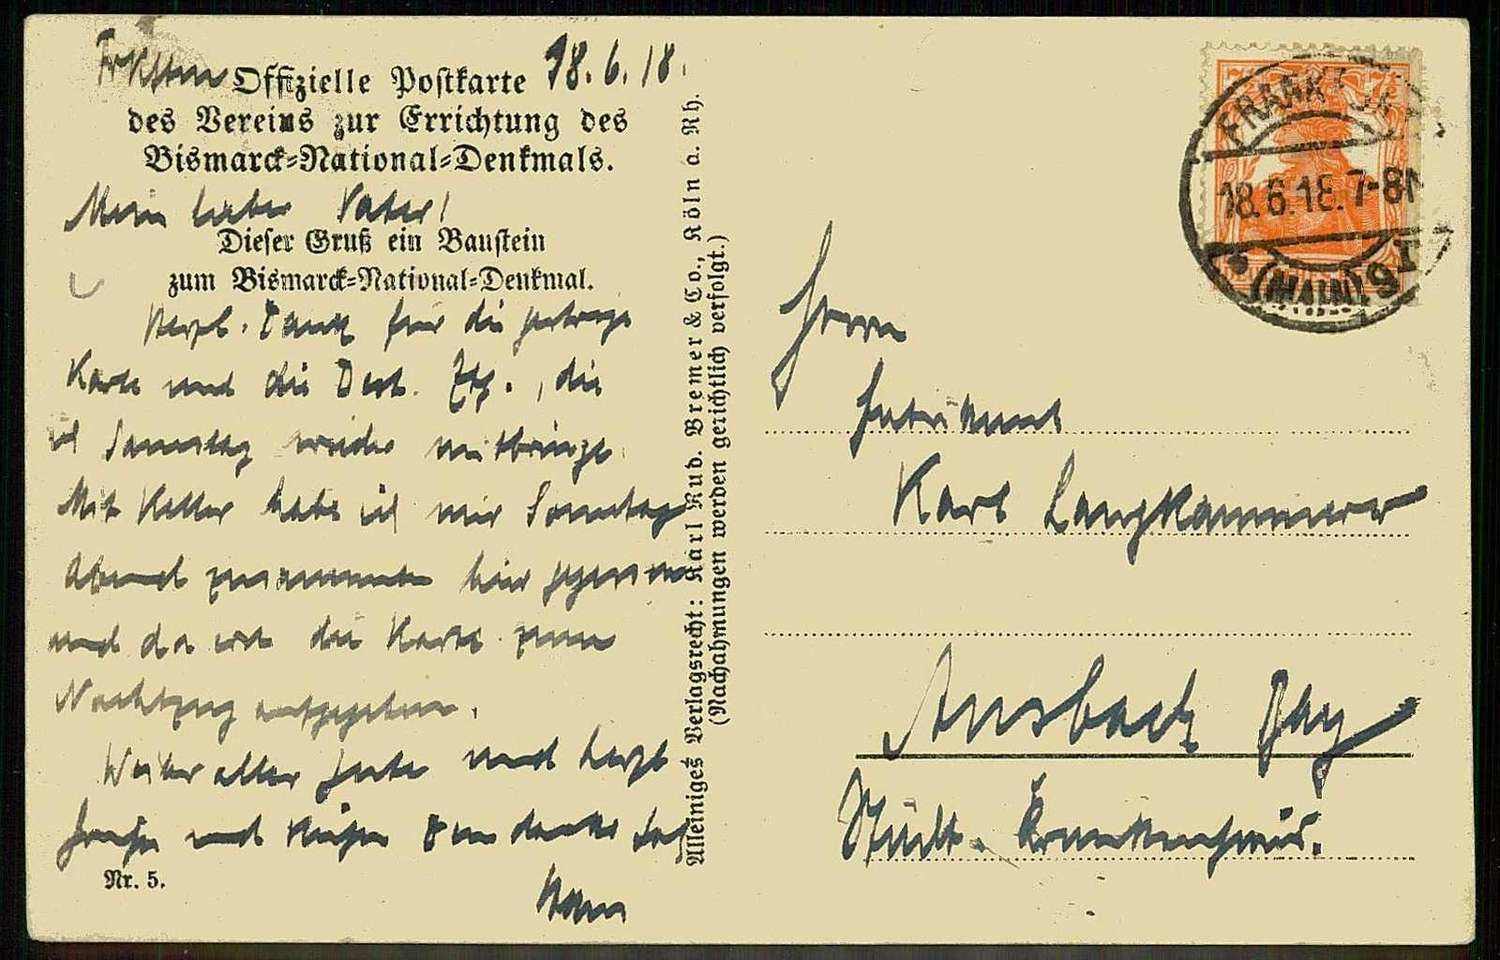 18.6.18.
Offizielle Postkarte
des Vereins zur Errichtung des
Bismarck=National=Denkmals.
Mein lieber Vater!
Dieser Gruß ein Baustein
zum Bismarck=National=Denkmal.
Herzl. Dank für die gestrige
Karte und die Ztg., die
ich Samstag wieder mitbringe.
Mit Keller habe ich mir Sonntag
Abend zusammen hier
und da die Karte zum
Nachtzug aufgegeben.
Weiter alles Gute und herzl
Grüße und Küsse Dein
Nr. 5.
Alleiniges Verlagsrecht: Karl Rud. Bremer & Co., Köln a. Rh.
(Nachahmungen werden gerichtlich verfolgt.)
FRANKFURT
18.6.18.7-8N
(MAIN) 9
Herrn
Karl Langkammerer
Ansbach Bay
Städt. Krankenhaus.